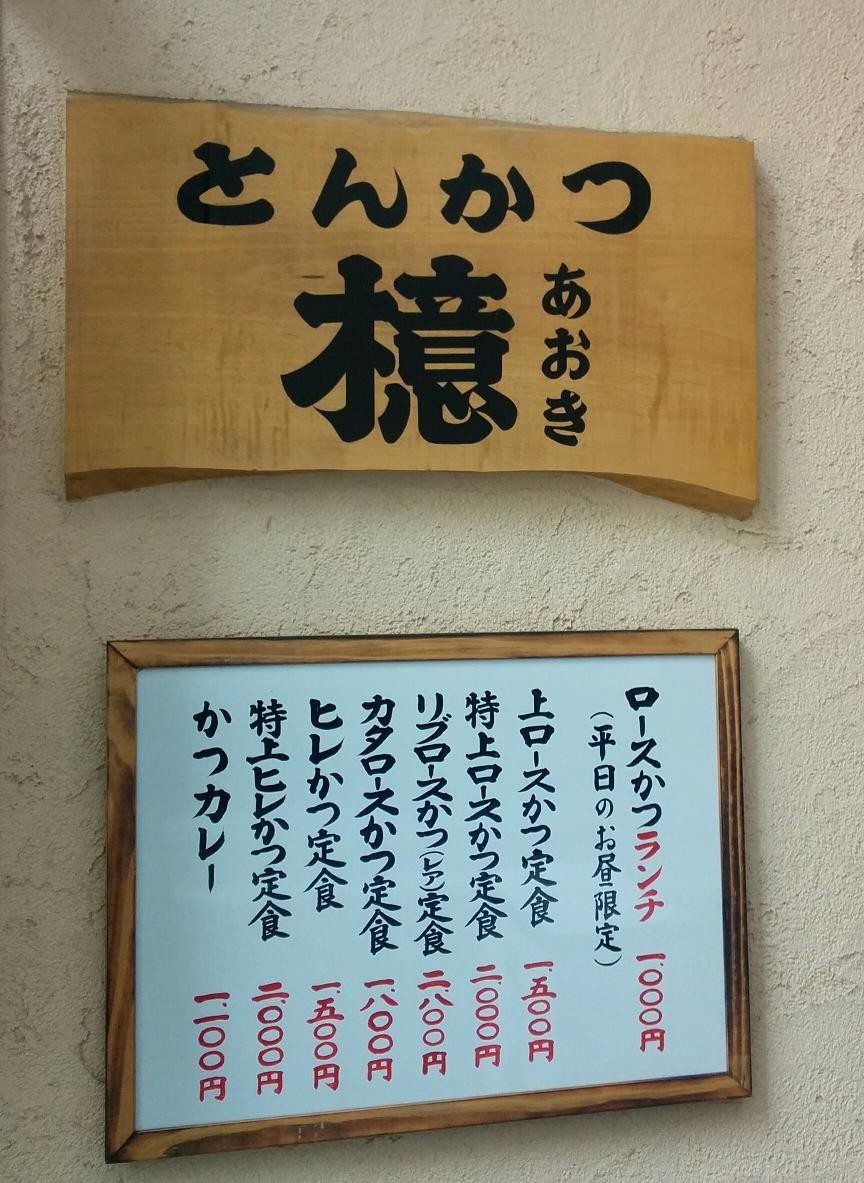 とんかつ
檍
あおき
ロースかつランチ 一、〇〇〇円
（平日のお昼限定）
上ロースかつ定食 一、五〇〇円
特上ロースかつ定食 二、〇〇〇円
リブロースかつ（レア）定食 二、八〇〇円
カタロースかつ定食 一、八〇〇円
ヒレかつ定食 一、五〇〇円
特上ヒレかつ定食 二、〇〇〇円
かつカレー 一、二〇〇円